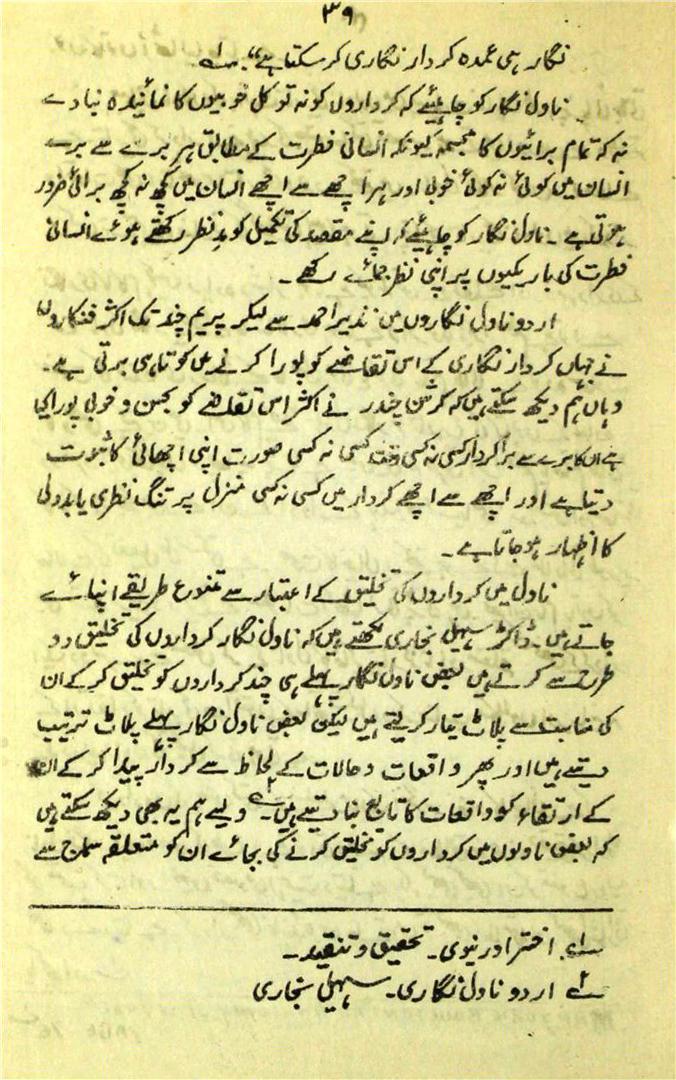 ۳۹
نگار ہی عمدہ کردار نگاری کر سکتا ہے“۔ ۱؎
ناول نگار کو چاہیئے کہ کرداروں کو نہ تو کل خوبیوں کا نمائیندہ بنا دے
نہ کہ تمام برائیوں کا مجسمہ کیونکہ انسانی فطرت کے مطابق ہر برے سے برے
انسان میں کوئی نہ کوئی خوبی اور ہر اچھے سے اچھے انسان میں کچھ نہ کچھ برائی ضرور
ہوتی ہے ۔ ناول نگار کو چاہیئے کہ اپنے مقصد کی تکمیل کو مدِنظر رکھتے ہوئے انسانی
فطرت کی باریکیوں پر اپنی نظر جمائے رکھے ۔
اردو ناول نگاروں میں نذیر احمد سے لیکر پریم چند تک اکثر فنکاروں
نے جہاں کردار نگاری کے اس تقاضے کو پورا کرنے میں کوتاہی برتی ہے ۔
وہاں ہم دیکھ سکتے ہیں کہ کرشن چندر نے اکثر اس تقاضے کو بحسن و خوبی پورا کیا
ہے ان کا برے سے برا کردار کسی نہ کسی وقت کسی نہ کسی صورت اپنی اچھائی کا ثبوت
دیتا ہے اور اچھے سے اچھے کردار میں کسی نہ کسی منزل پر تنگ نظری یا بددلی
کا اظہار ہو جاتا ہے ۔
ناول میں کرداروں کی تخلیق کے اعتبار سے متنوع طریقے اپنائے
جاتے ہیں ۔ ڈاکٹر سہیل بخاری لکھتے ہیں کہ ناول نگار کرداروں کی تخلیق دو
طرح سے کرتے ہیں بعض ناول نگار پہلے ہی چند کرداروں کو تخلیق کر کے ان
کی مناسبت سے پلاٹ تیار کر لیتے ہیں لیکن بعض ناول نگار پہلے پلاٹ ترتیب
دیتے ہیں اور پھر واقعات و حالات کے لحاظ سے کردار پیدا کر کے ان
کے ارتقاء کو واقعات کا تابع بنا دیتے ہیں ۔ ۲؎ ویسے ہم یہ بھی دیکھ سکتے ہیں
کہ بعض ناولوں میں کرداروں کو تخلیق کرنے کی بجائے ان کو متعلقہ سماج سے
۱؎ اختر اورنیوی ۔ تحقیق و تنقید ۔
۲؎ اردو ناول نگاری ۔ سہیل بخاری